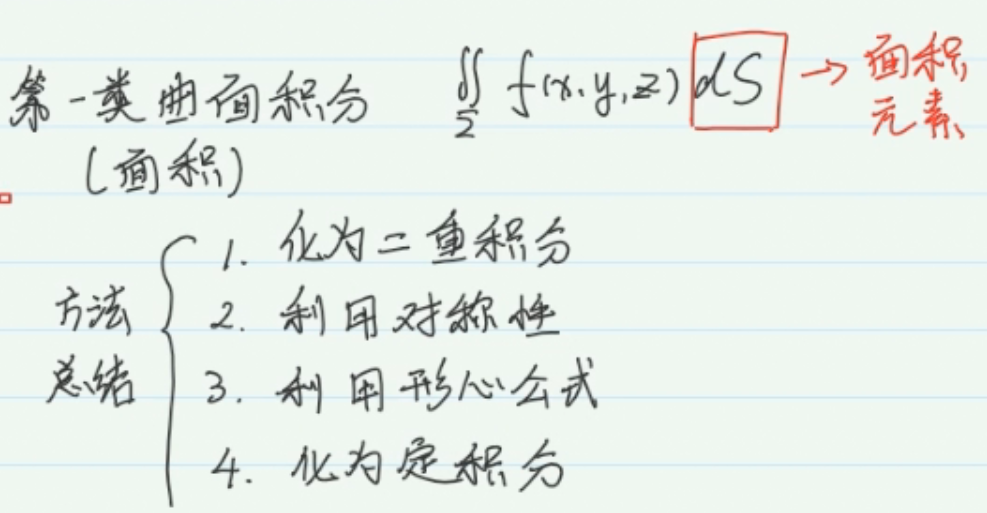 第一类曲面积分 ∬_Σ f(x,y,z) dS → 面积元素
(面积)
方法总结
1. 化为二重积分
2. 利用对称性
3. 利用形心公式
4. 化为定积分